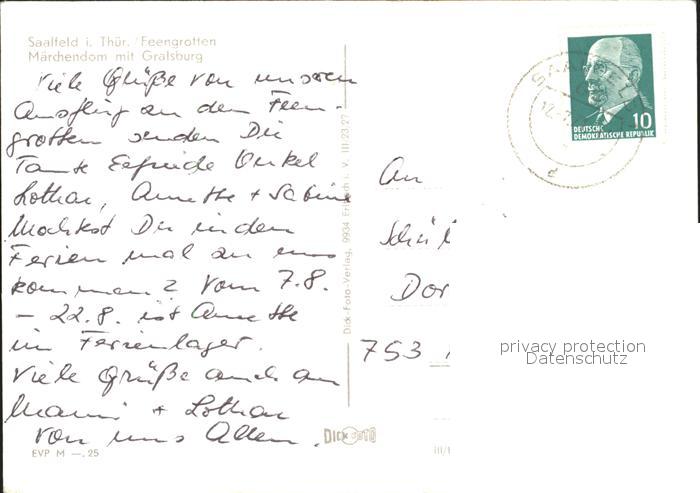 Saalfeld i. Thür. / Feengrotten
Märchendom mit Gralsburg
Viele Grüße von unseren
Ausflug zu den Feen-
grotten senden Dir
Tante Elfriede Onkel
Lothar, Annette + Sabine
Möchtest Du in den
Ferien mal zu uns
kommen? Vom 7.8.
- 22.8. ist Annette
im Ferienlager.
Viele Grüße auch an
Mami + Lothar
von uns Allen.
EVP M —.25
Dick-Foto-Verlag, 9934 Erlbach i. V. III 23 27
DICK FOTO
III/1
An
Schül
Dor
753
SAALFELD
12.-7.
d
10
DEUTSCHE
DEMOKRATISCHE REPUBLIK
privacy protection
Datenschutz